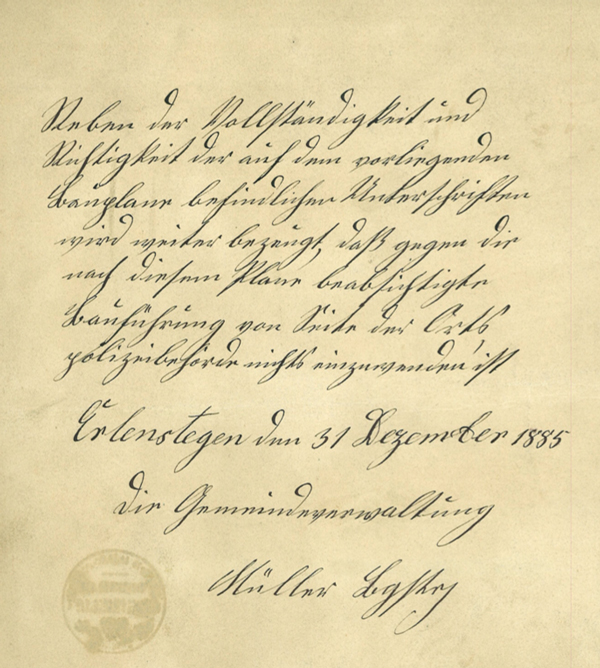 Neben der Vollständigkeit und
Richtigkeit der auf dem vorliegenden
Bauplane befindlichen Unterschriften
wird weiter bezeugt, daß gegen die
nach diesem Plane beabsichtigte
Bauführung von Seite der Orts
polizeibehörde nichts einzuwenden ist
Erlenstegen den 31 Dezember 1885
Die Gemeindeverwaltung
Müller Bgstr